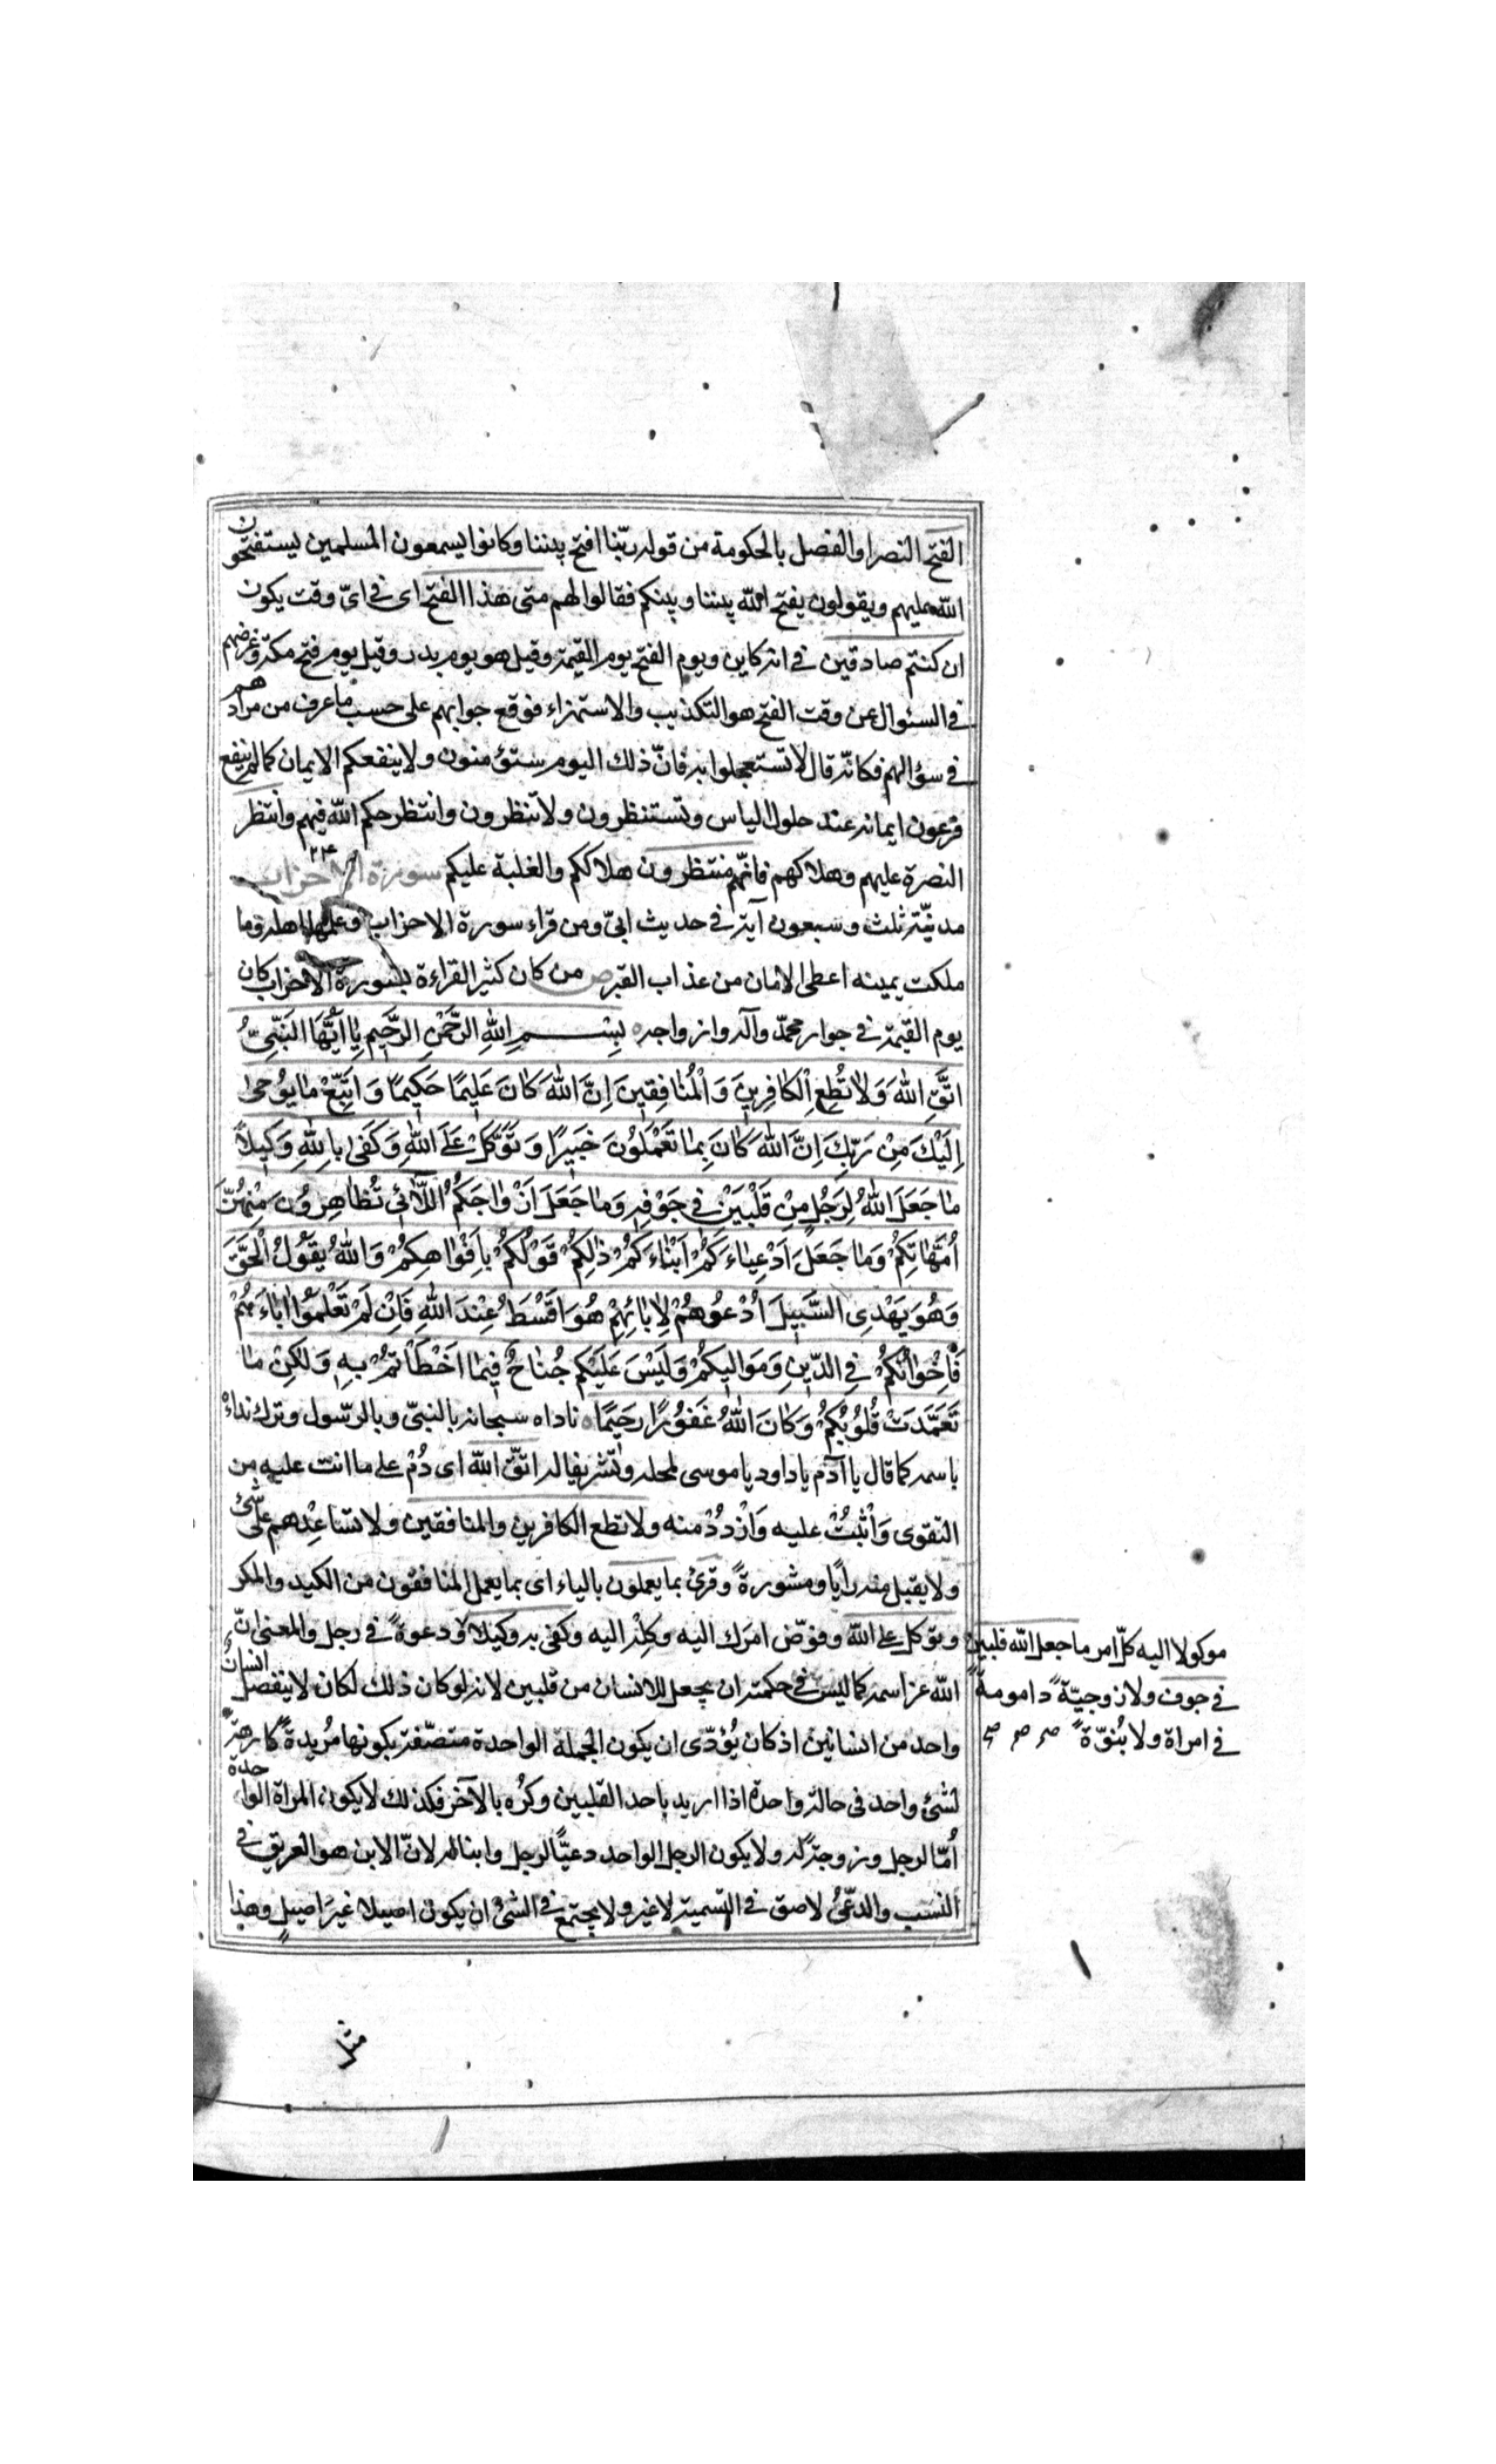 الفتح النصر او الفصل بالحكومة من قوله ربّنا افتح بيننا وكانوا يسمعون المسلمين يستفتحون
الله عليهم ويقولون يفتح الله بيننا وبينكم فقالوا لهم متى هذا الفتح اى فى اىّ وقت يكون
ان كنتم صادقين فى انه كاين ويوم الفتح يوم القيمة وقيل هو يوم بدر وقيل يوم فتح مكة وغرضهم
فى السئوال عن وقت الفتح هو التكذيب والاستهزاء فوقع جوابهم على حسب ما عرف من مرادهم
فى سؤالهم فكانّه قال لا تستعجلوا به فانّ ذلك اليوم ستؤمنون ولا ينفعكم الايمان كما لم ينفع
فرعون ايمانه عند حلول الباس وتستنظرون ولا تنظرون وانتظر حكم الله فيهم وانتظر
النصرة عليهم وهلاكهم فانّهم منتظرون هلاككم والغلبة عليكم سورة الاحزاب
مدنيّة ثلث وسبعون آية فى حديث ابىّ ومن قراء سورة الاحزاب وعلمها اهله وما
ملكت يمينه اعطى الامان من عذاب القبر ص من كان كثير القراءة بسورة الاحزاب كان
يوم القيمة فى جوار محمّد وآله وازواجه بِسْمِ اللهِ الرَّحْمٰنِ الرَّحِيمِ يٰا اَيُّهَا النَّبِىُّ
اتَّقِ اللهَ وَلٰا تُطِعِ الْكٰافِرِينَ وَالْمُنٰافِقِينَ اِنَّ اللهَ كٰانَ عَلِيمًا حَكِيمًا وَاتَّبِعْ مٰا يُوحىٰ
اِلَيْكَ مِنْ رَبِّكَ اِنَّ اللهَ كٰانَ بِمٰا تَعْمَلُونَ خَبِيرًا وَتَوَكَّلْ عَلَى اللهِ وَكَفىٰ بِاللهِ وَكِيلاً
مٰا جَعَلَ اللهُ لِرَجُلٍ مِنْ قَلْبَيْنِ فِى جَوْفِهِ وَمٰا جَعَلَ اَزْوٰاجَكُمُ اللّٰائِى تُظٰاهِرُونَ مِنْهُنَّ
اُمَّهٰاتِكُمْ وَمٰا جَعَلَ اَدْعِيٰاءَكُمْ اَبْنٰاءَكُمْ ذٰلِكُمْ قَوْلُكُمْ بِاَفْوٰاهِكُمْ وَاللهُ يَقُولُ الْحَقَّ
وَهُوَ يَهْدِى السَّبِيلَ اُدْعُوهُمْ لِاٰبٰائِهِمْ هُوَ اَقْسَطُ عِنْدَ اللهِ فَاِنْ لَمْ تَعْلَمُوا اٰبٰاءَهُمْ
فَاِخْوٰانُكُمْ فِى الدِّينِ وَمَوٰالِيكُمْ وَلَيْسَ عَلَيْكُمْ جُنٰاحٌ فِيمٰا اَخْطَاْتُمْ بِهِ وَلٰكِنْ مٰا
تَعَمَّدَتْ قُلُوبُكُمْ وَكٰانَ اللهُ غَفُورًا رَحِيمًا ناداه سبحانه بالنبىّ وبالرّسول وترك نداءه
باسمه كما قال يا آدم يا داود يا موسى لمحله وتشريفا له اتّق اللهَ اى دُمْ على ما انت عليه من
التقوى وَاثْبُتْ عليه وَازْدَدْ منه ولا تطع الكافرين والمنافقين ولا تساعِدْهم على شئ
ولا يقبل منه رايًا ومشورةً وقرئ بما يعملون بالياء اى بما يعمل المنافقون من الكيد والمكر
وتوكل على الله وفوّض امرَك اليه وكِلْه اليه وكفى به وكيلا ودعوةً فى رجل والمعنى انّ
الله عزّ اسمه كما ليس فى حكمته ان يجعل للانسان من قلبين لانه لو كان ذلك لكان لا ينفصل انسان
واحد من انسانين اذ كان يُؤدّى ان يكون الجملة الواحدة متصّفة بكونها مُريدة كارهة
لشئ واحد فى حالة واحدة اذا اريد باحد القلبين وكرُه بالآخر فكذلك لا يكون المراة الواحدة
اُمّا لرجل وزوجة له ولا يكون الرجل الواحد دعيّاً لرجل وابنا له لانّ الابن هو العريق فى
النسب والدعّىُ لاصق فى التسمية لا غير ولا يجتمع فى الشئ ان يكون اصيلا غيرَ اصيلٍ وهذا
موكولا اليه كلّ امر ما جعل الله قلبين
فى جوف ولا زوجيّةً وامومةً
فى امراة ولا بُنوّةً صح
مثل